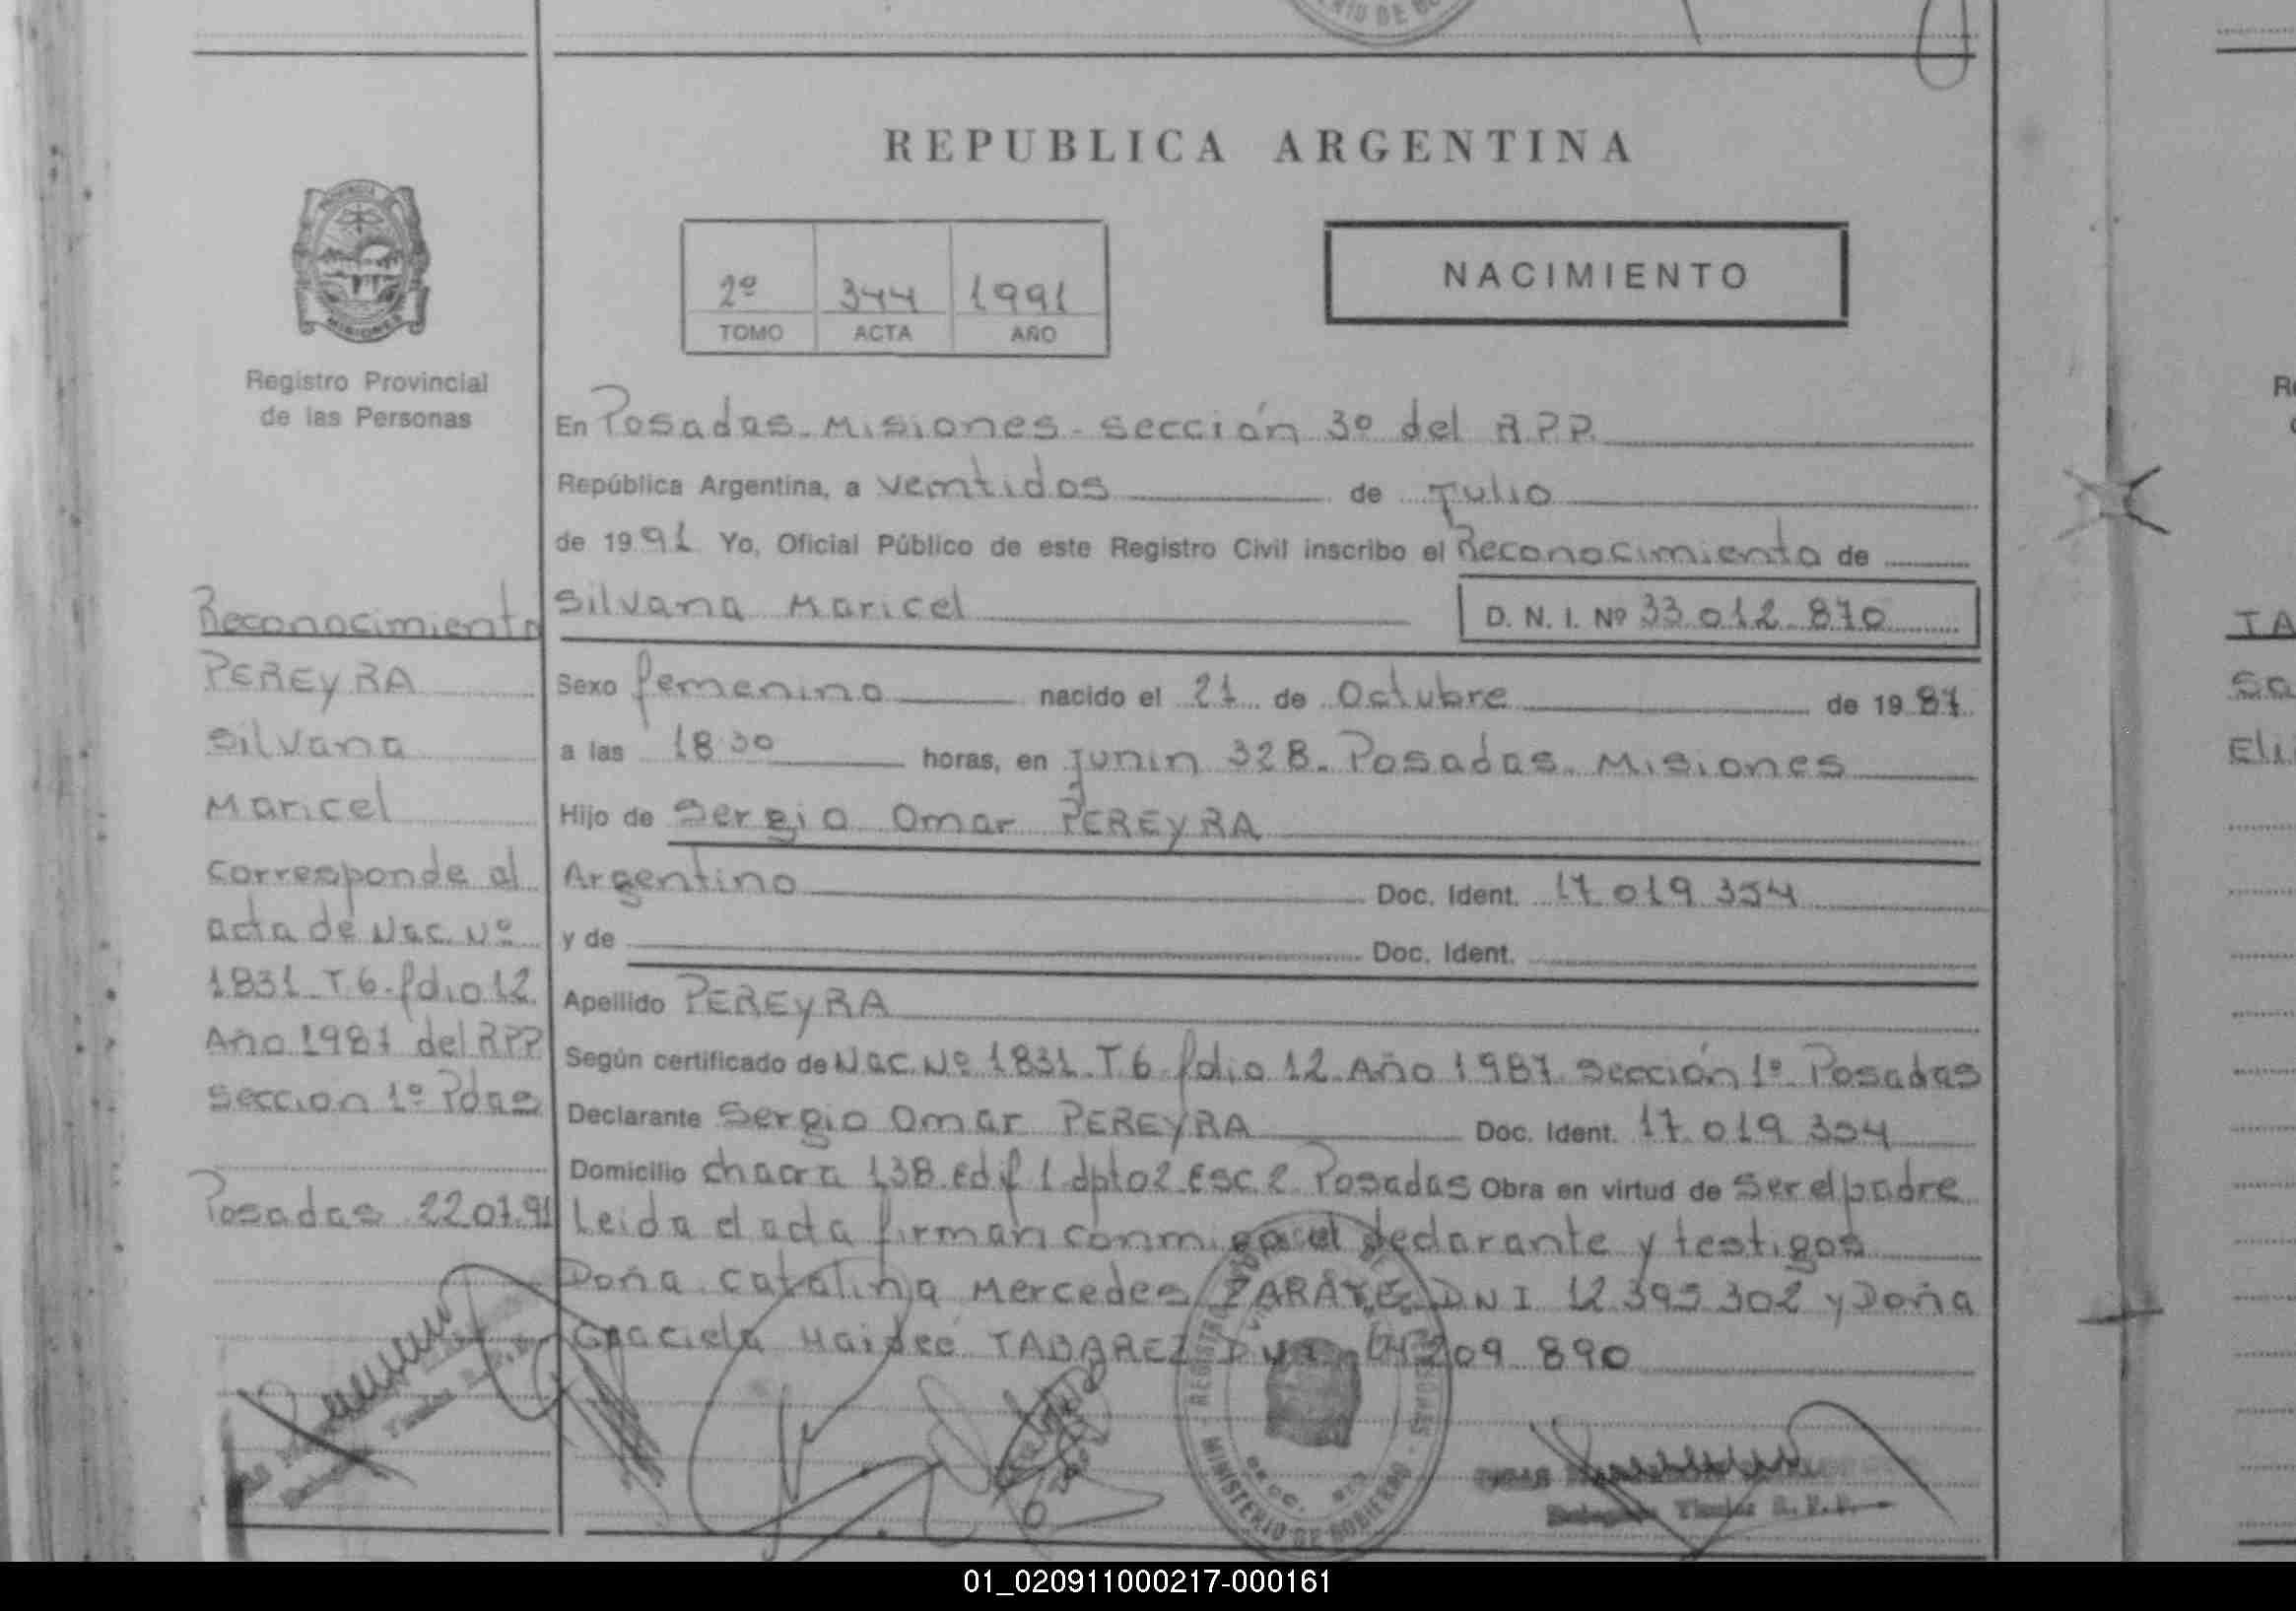 REPUBLICA ARGENTINA
MISIONES
Registro Provincial
de las Personas
2º 344 1991
TOMO ACTA AÑO
NACIMIENTO
En Posadas. Misiones. Sección 3º del R.P.P.
República Argentina, a veintidos de Julio
de 1991 Yo, Oficial Público de este Registro Civil inscribo el Reconocimiento de
Silvana Maricel D. N. I. Nº 33.012.870
Sexo femenino nacido el 21 de Octubre de 1987
a las 18.30 horas, en Junin 328. Posadas. Misiones
Hijo de Sergio Omar PEREYRA
Argentino Doc. Ident. 17.019.354
y de Doc. Ident.
Apellido PEREYRA
Según certificado de Nac. Nº 1831. T.6. folio 12. Año 1987. Sección 1º. Posadas
Declarante Sergio Omar PEREYRA Doc. Ident. 17.019.354
Domicilio chacra 138 Edif 1 dpto 2 Esc. 2. Posadas Obra en virtud de ser el padre
Leida el acta firman conmigo el declarante y testigos
Doña Catalina Mercedes ZARATE DNI 12.395.302 y Doña
Graciela Haideé TABAREZ 209.890
Reconocimiento
PEREYRA
Silvana
Maricel
corresponde al
acta de Nac. Nº
1831. T.6. folio 12.
Año 1987 del RPP
Sección 1º Pdas
Posadas 22.07.91
MINISTERIO DE GOBIERNO
01_020911000217-000161